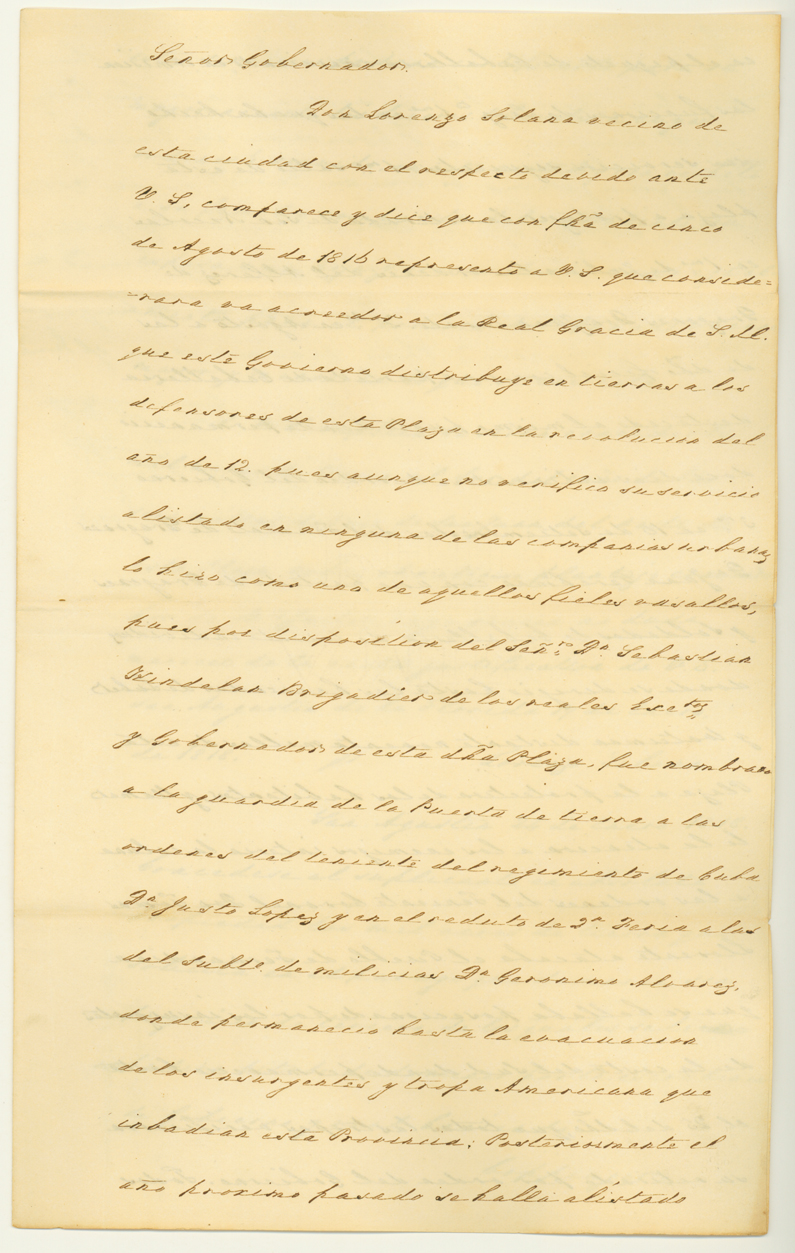 Señor Gobernador.
Don Lorenzo Solana vecino de
esta ciudad con el respecto devido ante
V. S. comparece y dice que con fha de cinco
de Agosto de 1816 represento a V. S. que conside=
=rara va acreedor a la Real Gracia de S. M.
que este Govierno distribuye en tierras a los
defensores de esta Plaza en la revolucion del
año de 12. pues aunque no verifico su servicio
alistado en ninguna de las companias urbanas
lo hizo como uno de aquellos fieles vasallos,
pues por disposition del Señ.ro Dn. Sebastian
Kindelan Brigadier de los reales Exctos
y Gobernador de esta dha Plaza, fue nombrado
a la guardia de la Puerta de tierra a las
ordenes del teniente del regimiento de Cuba
Dn. Justo Lopez y en el reduto de 2a. Feria a las
del Subte. de milicias Dn. Geronimo Alvarez,
donde permanecio hasta la evacuacion
de los insurgentes y tropa Americana que
inbadian esta Provincia; Posteriormente el
año proximo pasado se halla alistado